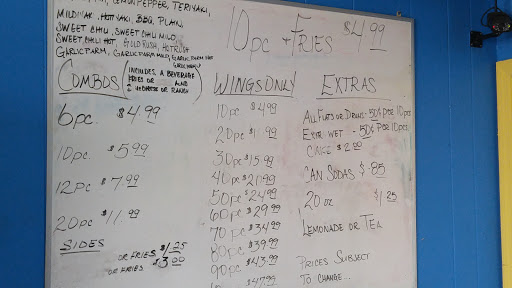 LEMONPEPPER, TERIYAKI,
MILD, HOT, KAJ, BBQ, PLAIN,
SWEET CHILI, SWEET CHILI MILD,
SWEET CHILI HOT, GOLD RUSH, HOT RUSH
GARLIC PARM, GARLIC PARM MILD, GARLIC PARM HOT
10pc + FRIES $4.99
COMBOS
(INCLUDES A BEVERAGE
FRIES OR AND
BLUCHEESE OR RANCH
6pc. $4.99
10pc. $5.99
12pc $7.99
20pc $11.99
SIDES
OR FRIES $1.25
OR FRIES $3.00
WINGS ONLY
10pc $4.99
20pc 99
30pc $15.99
40pc $20.99
50pc $24.99
60pc $29.99
70pc $34.99
80pc $39.99
90pc $43.99
$47.99
EXTRAS
ALL FLATS OR DRUMS - 50¢ PER 10pcs
EXTRA WET - 50¢ PER 10pcs
CAKE $2.00
CAN SODAS $.85
20 oz $1.25
LEMONADE OR TEA
PRICES SUBJECT
TO CHANGE...